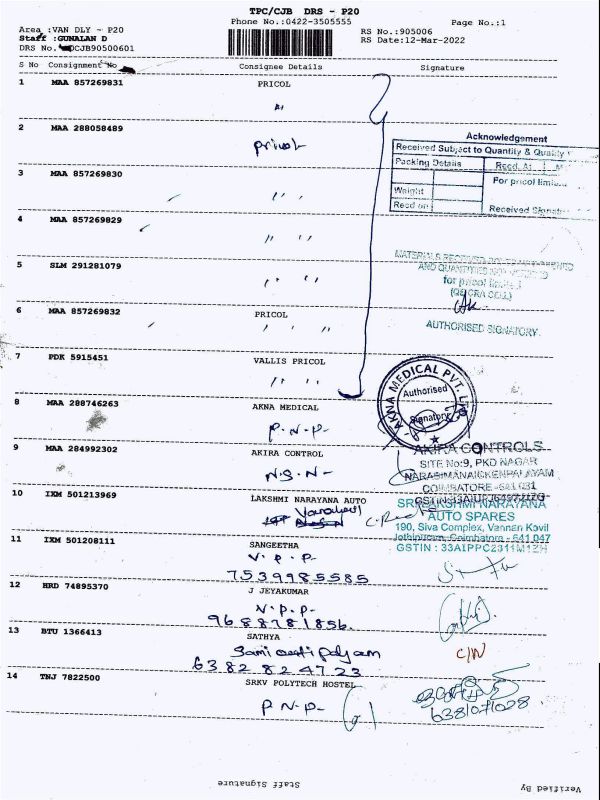 TPC/CJB DRS - P20
Phone No.:0422-3505555
Page No.:1
Area :VAN DLY - P20
Staff :GUNALAN D
DRS No. CJB90500601
RS No.:905006
RS Date:12-Mar-2022
S No Consignment No Consignee Details Signature
1 MAA 857269831 PRICOL
2 MAA 288058489
Pricol
Acknowledgement
Received Subject to Quantity & Quality
Packing Details Recd. At
3 MAA 857269830
For pricol limited
Weight
Recd on Received Signature
4 MAA 857269829
5 SLM 291281079
MATERIALS RECEIVED NOT
AND QUANTITIES NOT
for pricol limited
AUTHORISED SIGNATORY.
6 MAA 857269832 PRICOL
7 PDK 5915451 VALLIS PRICOL
AKNA MEDICAL PVT. LTD
Authorised
Signatory
8 MAA 288746263 AKNA MEDICAL
P.N.P-
9 MAA 284992302 AKIRA CONTROL
N.G.N-
AKIRA CONTROLS
SITE No:9, PKD NAGAR
NARASIMANAICKENPALAYAM
COIMBATORE -641 031
10 IXM 501213969 LAKSHMI NARAYANA AUTO
SRI LAKSHMI NARAYANA
AUTO SPARES
190, Siva Complex, Vannan Kovil
Jothipuram, Coimbatore - 641 047
GSTIN : 33AIPPC2311M1ZH
11 IXM 501208111 SANGEETHA
V.P.P-
7539985585
12 HRD 74895370 J JEYAKUMAR
N.P.P-
9688781856.
13 BTU 1366413 SATHYA
C/W
6382824723
14 TNJ 7822500 SRKV POLYTECH HOSTEL
P.N.P-
Staff Signature
Verified By